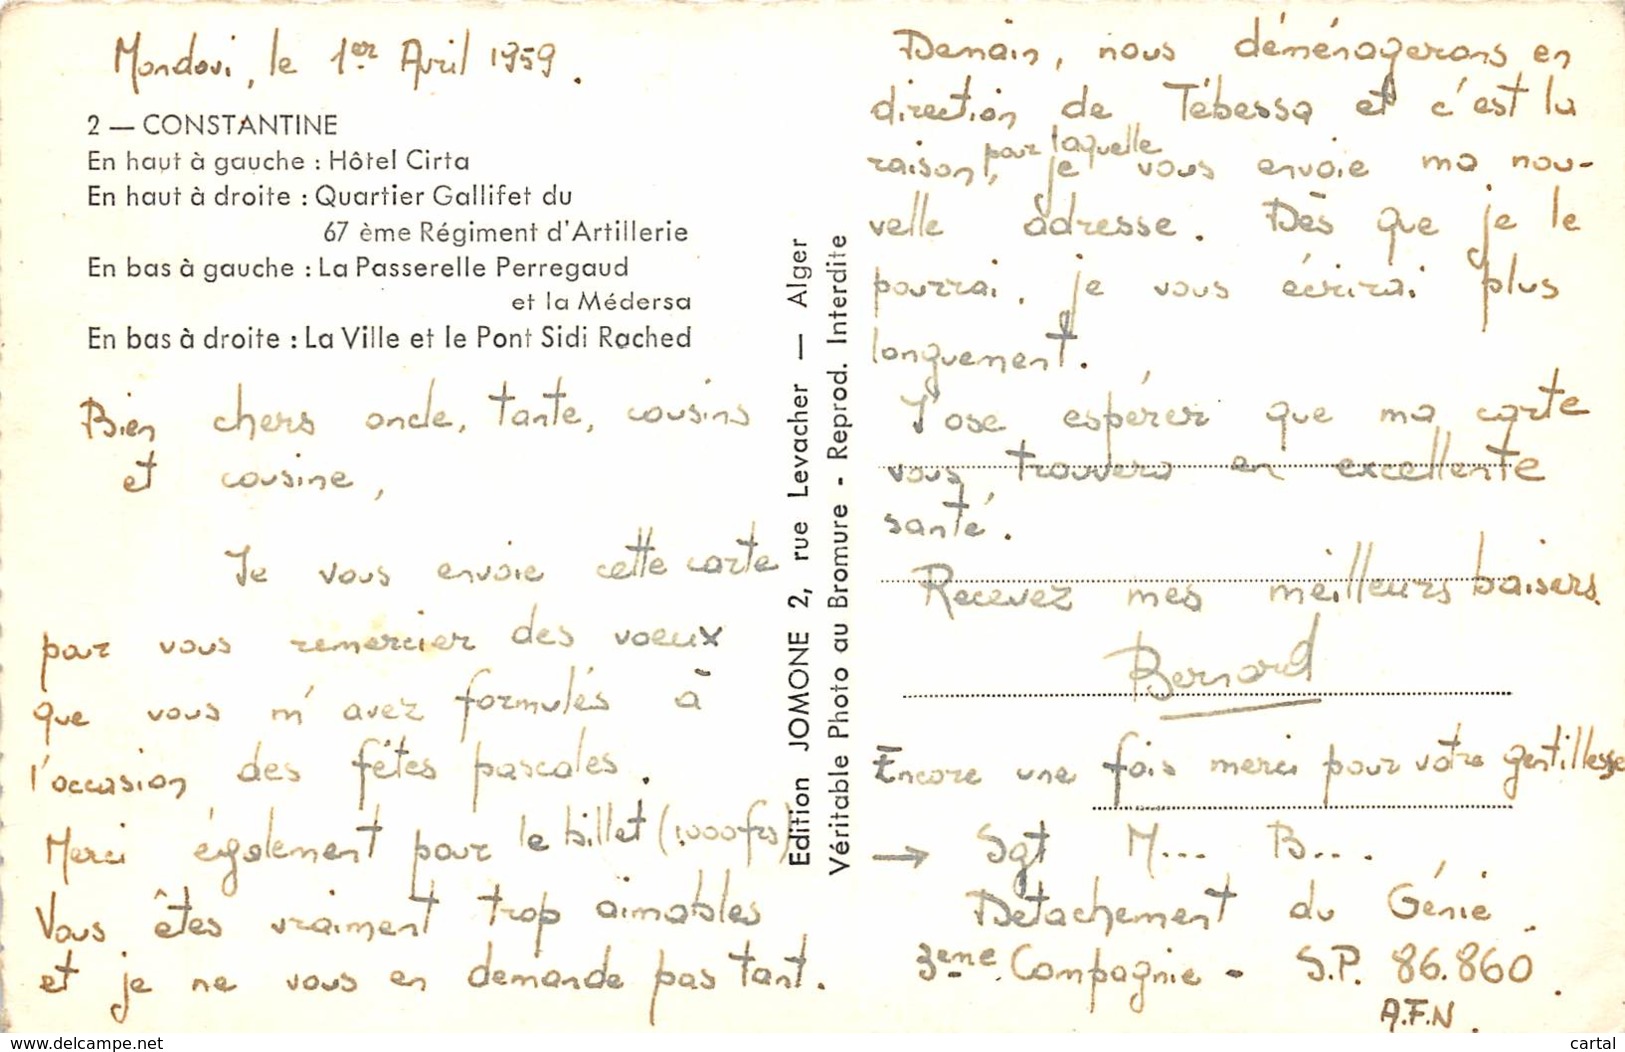 Mondovi, le 1er Avril 1959.
2 — CONSTANTINE
En haut à gauche : Hôtel Cirta
En haut à droite : Quartier Gallifet du
67 ème Régiment d'Artillerie
En bas à gauche : La Passerelle Perregaud
et la Médersa
En bas à droite : La Ville et le Pont Sidi Rached
Bien chers oncle, tante, cousins
et cousine,
Je vous envoie cette carte
pour vous remercier des voeux
que vous m'avez formulés à
l'occasion des fêtes pascales.
Merci également pour le billet (1.000frs)
Vous êtes vraiment trop aimables
et je ne vous en demande pas tant.
Edition JOMONE 2, rue Levacher — Alger
Véritable Photo au Bromure - Reprod. Interdite
Demain, nous déménagerons en
direction de Tébessa et c'est la
raison, pour laquelle je vous envoie ma nou-
velle adresse. Dès que je le
pourrai, je vous écrirai plus
longuement.
J'ose espérer que ma carte
vous trouvera en excellente
santé.
Recevez mes meilleurs baisers.
Bernard
Encore une fois merci pour votre gentillesse
→ Sgt M... B....
Détachement du Génie.
3eme Compagnie - S.P. 86.860.
A.F.N.
www.delcampe.net
cartal